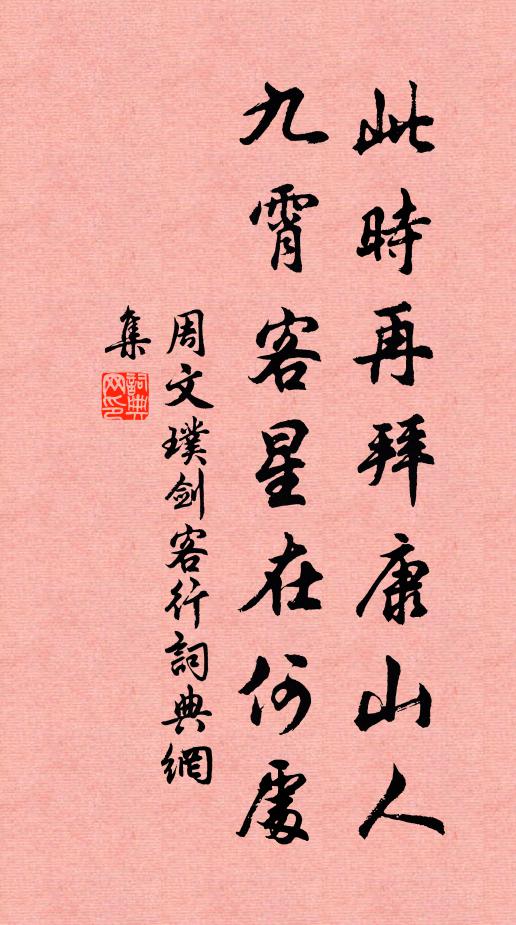 此時再拜康山人
九霄客星在何處
周文璞剑客行詞典網
集
詞典網印